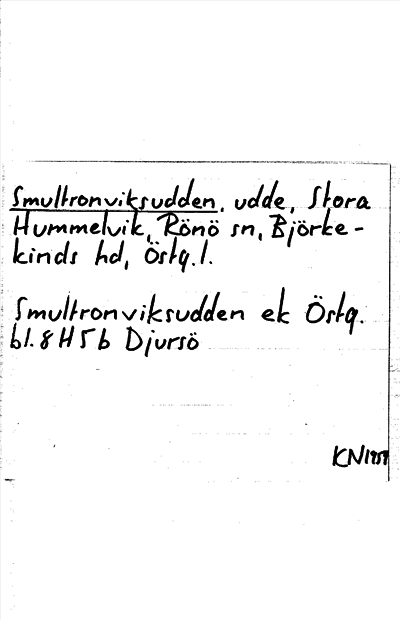 Smultronviksudden, udde, Stora
Hummelvik, Rönö sn, Björke-
kinds hd, Östg.l.
Smultronviksudden ek Östg.
bl. 8 H 5 b Djursö
KN